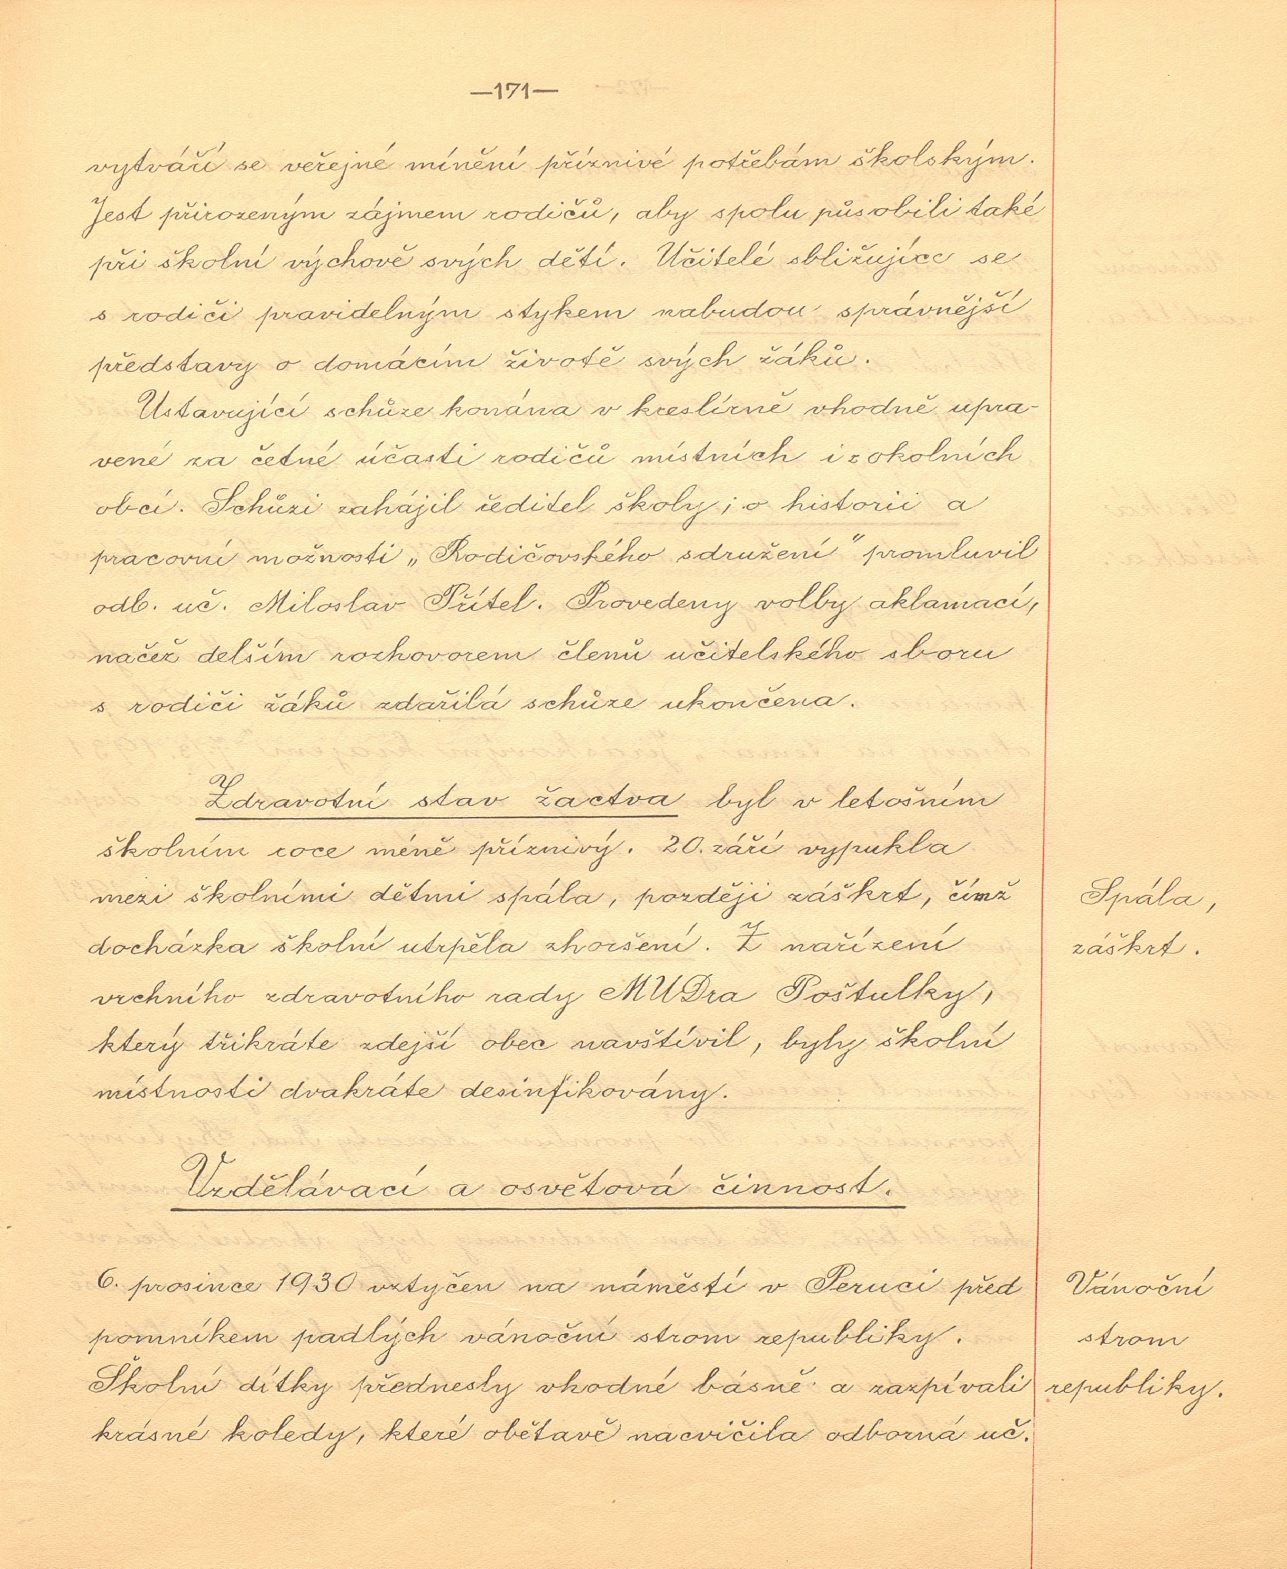 —171—
vytváří se veřejné mínění příznivé potřebám školským.
Jest přirozeným zájmem rodičů, aby spolu působili také
při školní výchově svých dětí. Učitelé sbližujíce se
s rodiči pravidelným stykem nabudou správnější
představy o domácím životě svých žáků.
Ustavující schůze konána v kreslírně vhodně upra-
vené za četné účasti rodičů místních i z okolních
obcí. Schůzi zahájil ředitel školy; o historii a
pracovní možnosti „Rodičovského sdružení" promluvil
odb. uč. Miloslav Přítel. Provedeny volby aklamací,
načež delším rozhovorem členů učitelského sboru
s rodiči žáků zdařilá schůze ukončena.
Zdravotní stav žactva byl v letošním
školním roce méně příznivý. 20. září vypukla
mezi školními dětmi spála, později záškrt, čímž
Spála,
docházka školní utrpěla zhoršení. Z nařízení
záškrt.
vrchního zdravotního rady MUDra Poštulky,
který třikráte zdejší obec navštívil, byly školní
místnosti dvakráte desinfikovány.
Vzdělávací a osvětová činnost.
6. prosince 1930 vztyčen na náměstí v Peruci před
Vánoční
pomníkem padlých vánoční strom republiky.
strom
Školní dítky přednesly vhodné básně a zazpívali
republiky.
krásné koledy, které obětavě nacvičila odborná uč.